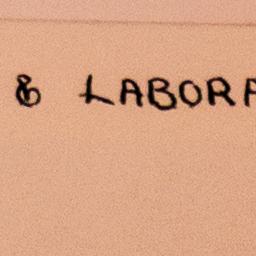 & LABORA